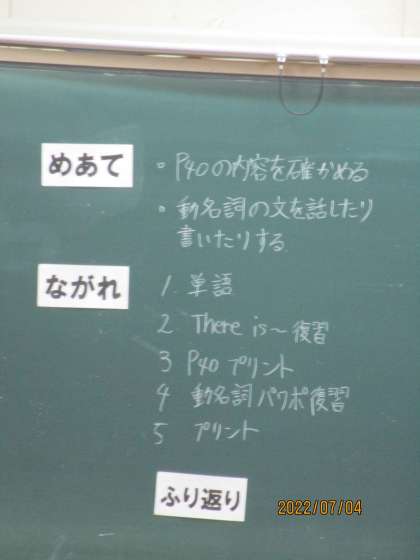 めあて
・P40の内容を確かめる
・動名詞の文を話したり
書いたりする
ながれ
1. 単語
2 There is～復習
3 P40 プリント
4 動名詞パワポ復習
5 プリント
ふり返り
2022/07/04